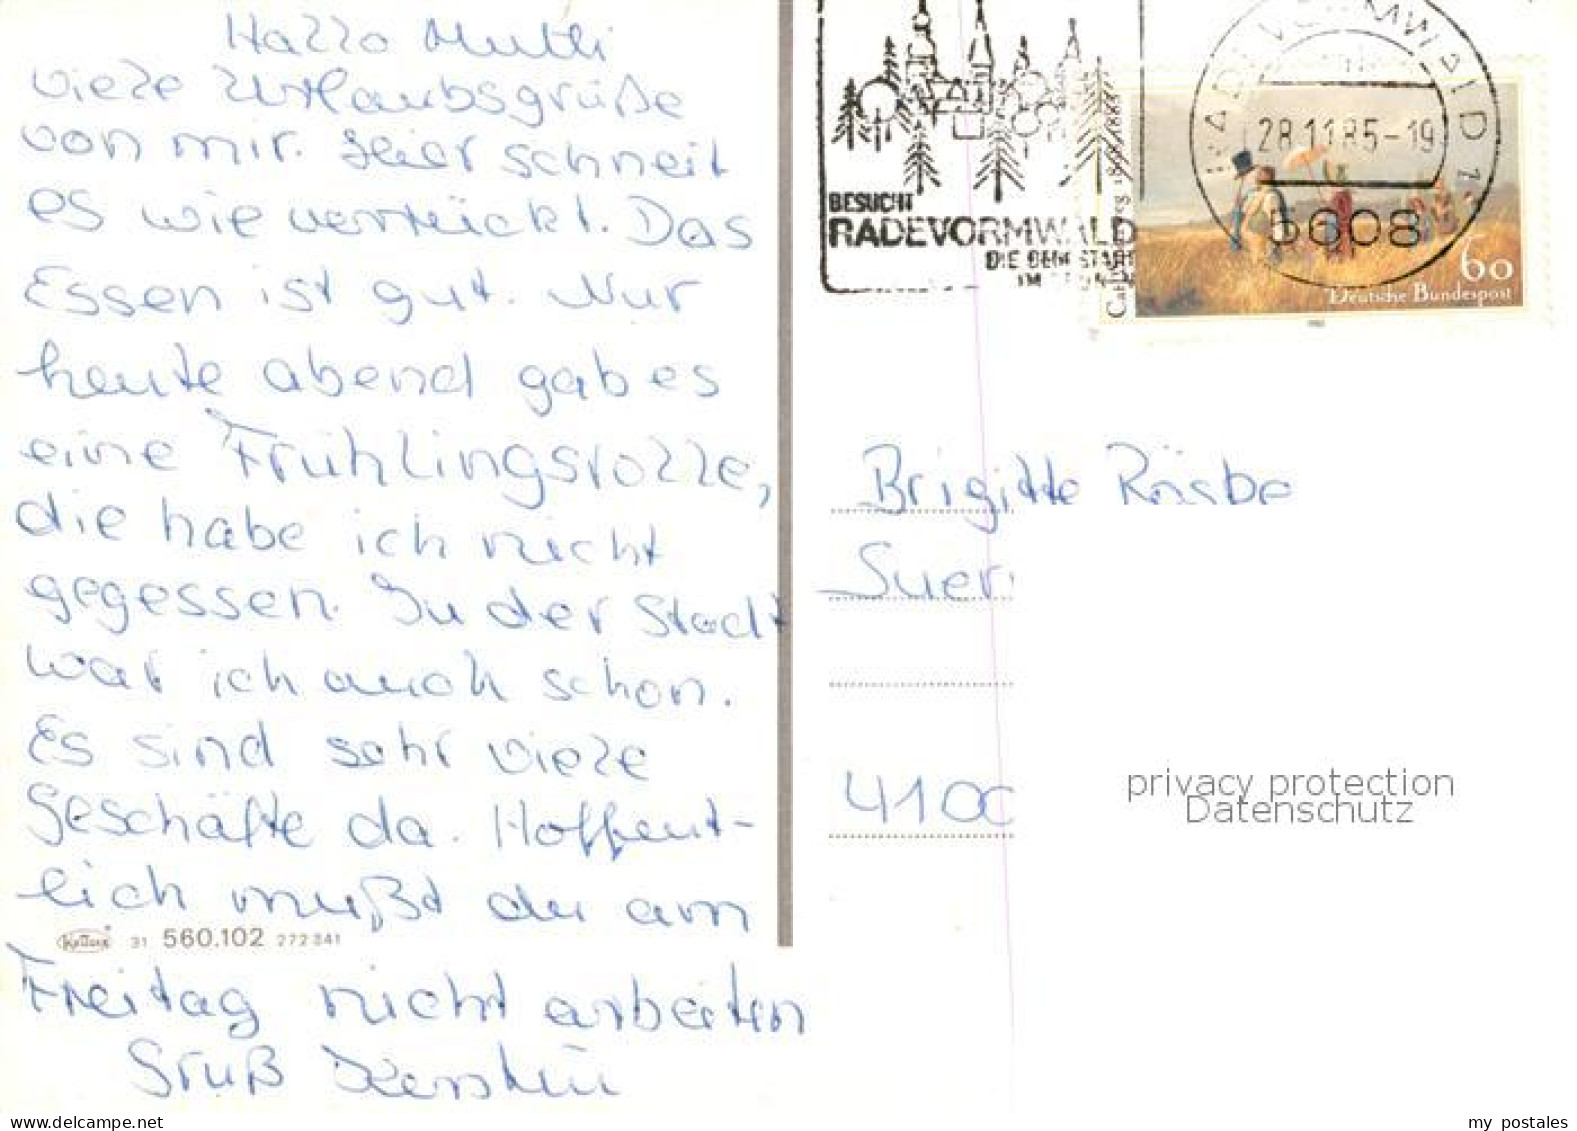 Hallo Mutti
viele Urlaubsgrüße
von mir. Hier schneit
es wie verrückt. Das
Essen ist gut. Nur
heute abend gab es
eine Frühlingsrolle,
die habe ich nicht
gegessen. In der Stadt
war ich auch schon.
Es sind sehr viele
Geschäfte da. Hoffent-
lich mußt du am
Freitag nicht arbeiten
Gruß Kerstin
31 560.102 272 341
BESUCHT
RADEVORMWALD
RADEVORMWALD 1
28.11.85-19
5608
60
Deutsche Bundespost
Brigitte
Suer
4100
privacy protection
Datenschutz
my postales
www.delcampe.net